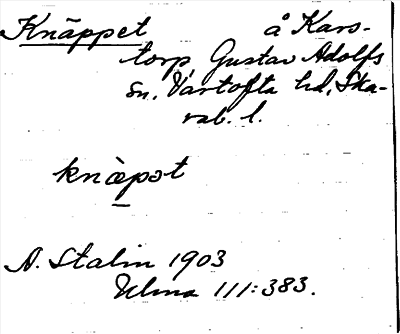 Knäppet å Kars-
torp, Gustav Adolfs
sn. Vartofta hd, Ska-
rab. l.
knæ̀pət
A. Stalin 1903
Ulma 111:383.